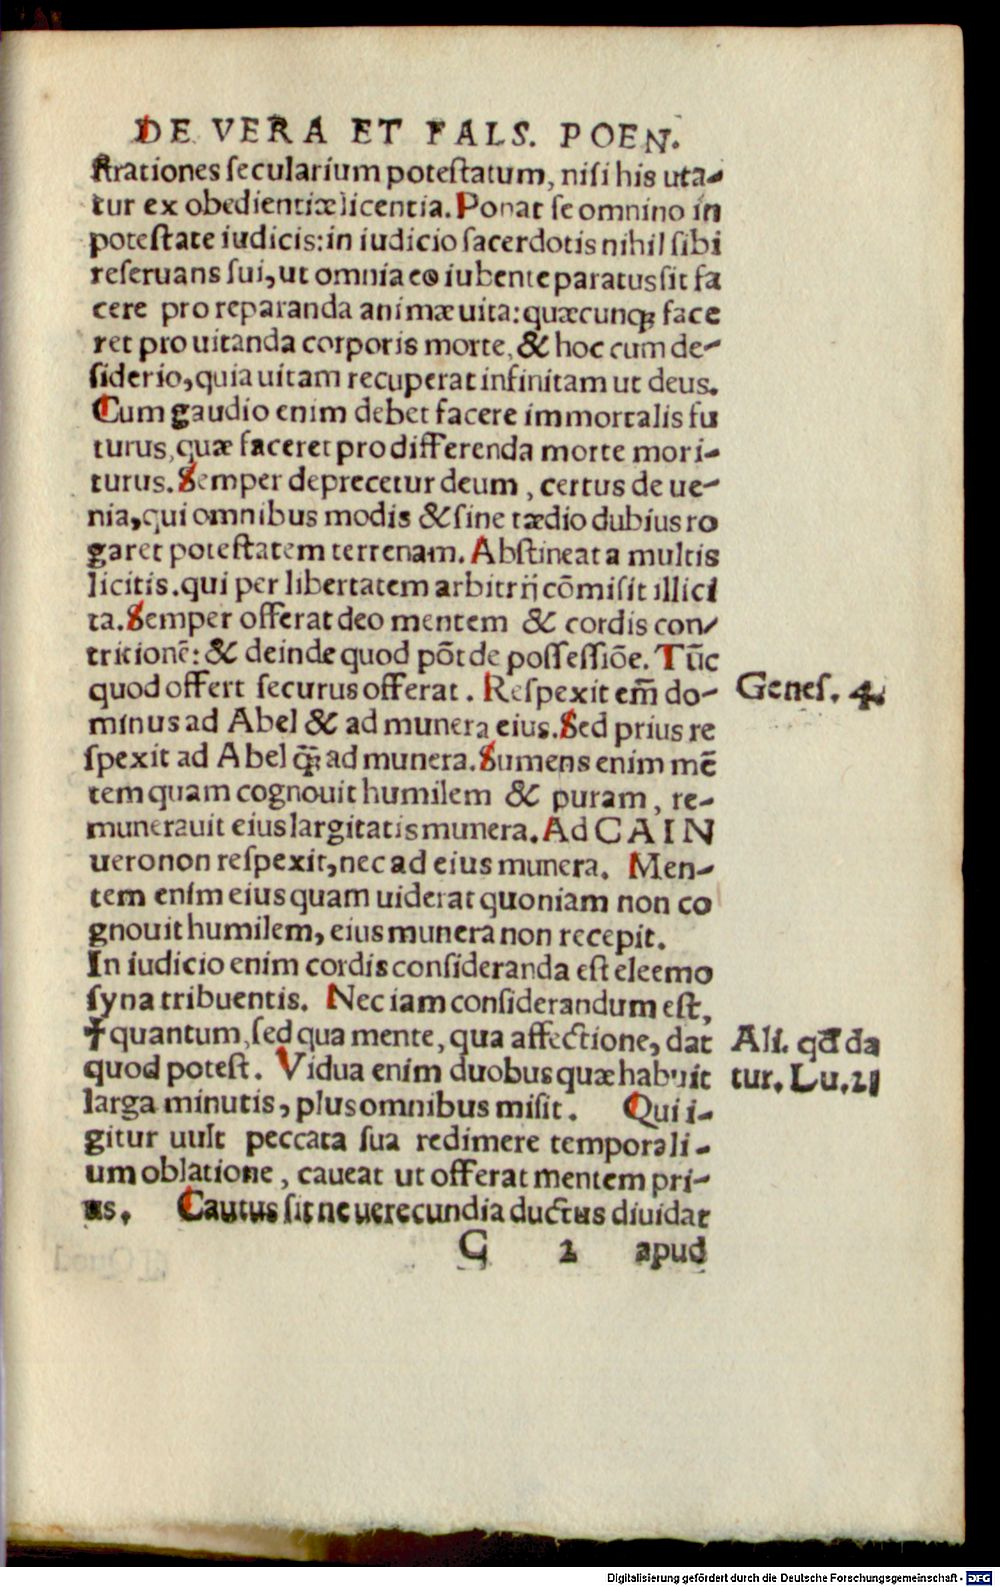 DE VERA ET FALS. POEN.
ſtrationes ſecularium poteſtatum, niſi his uta-
tur ex obedientiæ licentia. Ponat ſe omnino in
poteſtate iudicis: in iudicio ſacerdotis nihil ſibi
reſeruans ſui, ut omnia eo iubente paratus ſit fa
cere pro reparanda animæ uita: quæcunqꝫ face
ret pro uitanda corporis morte, & hoc cum de-
ſiderio, quia uitam recuperat infinitam ut deus.
Cum gaudio enim debet facere immortalis fu
turus, quæ faceret pro differenda morte mori-
turus. Semper deprecetur deum, certus de ue-
nia, qui omnibus modis & ſine tædio dubius ro
garet poteſtatem terrenam. Abſtineat a multis
licitis. qui per libertatem arbitrij cōmiſit illici
ta. Semper offerat deo mentem & cordis con-
tritionē: & deinde quod pōt de poſſeſſiōe. Tūc
quod offert ſecurus offerat. Reſpexit em̄ do-
Geneſ. 4.
minus ad Abel & ad munera eius. Sed prius re
ſpexit ad Abel q̄ꝫ ad munera. Sumens enim mē
tem quam cognouit humilem & puram, re-
munerauit eius largitatis munera. Ad CAIN
uero non reſpexit, nec ad eius munera. Men-
tem enim eius quam uiderat quoniam non co
gnouit humilem, eius munera non recepit.
In iudicio enim cordis conſideranda eſt eleemo
ſyna tribuentis. Nec iam conſiderandum eſt,
✝quantum, ſed qua mente, qua affectione, dat
Ali. qd̄ da
quod poteſt. Vidua enim duobus quæ habuit
tur. Lu. 21
larga minutis, plus omnibus miſit. Qui i-
gitur uult peccata ſua redimere temporali-
um oblatione, caueat ut offerat mentem pri-
us. Cautus ſit ne uerecundia ductus diuidat
G 2 apud
Digitalisierung gefördert durch die Deutsche Forschungsgemeinschaft - DFG